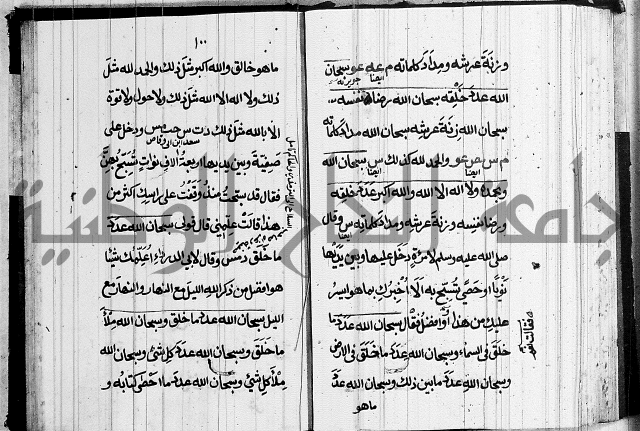 وزنة عرشه ومداد كلماته م عه عو سبحان
ايضا جويرية
الله عدد خلقه سبحان الله رضا نفسه
سبحان الله زنة عرشه سبحان الله مداد كلماته
م س ص عو والحمد لله كذلك س سبحان الله
ايضا ايضا
وبحمده ولا اله الا الله والله اكبر عدد خلقه
ورضا نفسه وزنة عرشه ومداد كلماته س وقال
ايضا
صلى الله عليه وسلم لامرأة دخل عليها وبين يديها
نوى او حصى تسبح به الا اخبرك بما هو ايسر
عليك من هذا او افضل فقال سبحان الله عدد ما
خلق في السماء وسبحان الله عدد ما خلق في الارض
وسبحان الله عدد ما بين ذلك وسبحان الله عدد
ما هو
فقالت نعم
١٠٠
ما هو خالق والله اكبر مثل ذلك والحمد لله مثل
ذلك ولا اله الا الله مثل ذلك ولا حول ولا قوة
الا بالله مثل ذلك د ت س حب مس ودخل على
سعد ابن ابي وقاص
صفية وبين يديها اربعة الاف نواة تسبح بهن
فقال قد سبحت منذ وقفت على راسك اكثر من
هذا قالت علمني قال قولي سبحان الله عدد
ما خلق د مس وقال لابي الدرداء اعلمك شيئا
هو افضل من ذكر الله الليل مع النهار والنهار مع
الليل سبحان الله عدد ما خلق وسبحان الله ملأ
ما خلق وسبحان الله عدد كل شئ وسبحان الله
ملأ كل شئ وسبحان الله عدد ما احصى كتابه و
جامعة النجاح الوطنية